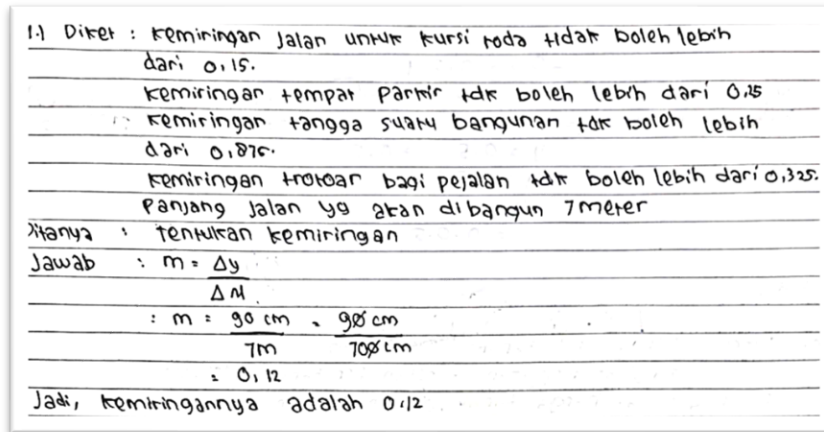 1.) Diket : Kemiringan Jalan untuk kursi roda tidak boleh lebih
dari 0,15.
Kemiringan tempat Parkir tdk boleh lebih dari 0,25
Kemiringan tangga suatu bangunan tdk boleh lebih
dari 0,875.
Kemiringan trotoar bagi pejalan tdk boleh lebih dari 0,325.
Panjang Jalan yg akan dibangun 7 meter
Ditanya : Tentukan kemiringan
Jawab : m = Δy
ΔX
: m = 90 cm = 90 cm
7m 700 cm
= 0,12
Jadi, kemiringannya adalah 0,12